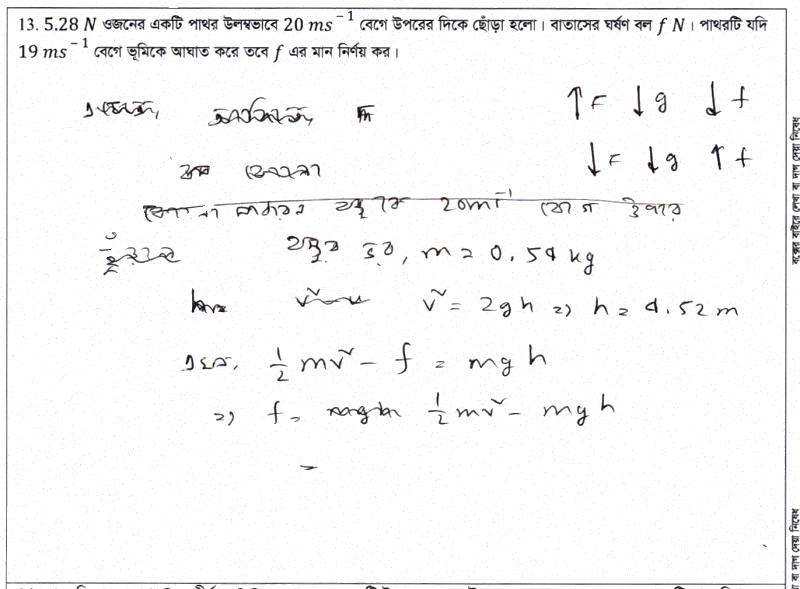 13. 5.28 N ওজনের একটি পাথর উলম্বভাবে 20 ms⁻¹ বেগে উপরের দিকে ছোঁড়া হলো। বাতাসের ঘর্ষণ বল f N। পাথরটি যদি
19 ms⁻¹ বেগে ভূমিকে আঘাত করে তবে f এর মান নির্ণয় কর।
↑F ↓g ↓f
↓F ↓g ↑f
বস্তুকে 20ms⁻¹ বেগে উপরে
বস্তুর ভর, m = 0.54 kg
v² = 2gh => h = 4.52 m
এখন, 1/2 mv² - f = mgh
=> f = 1/2 mv² - mgh
=
বক্সের বাইরে লেখা বা দাগ দেয়া নিষেধ
বা দাগ দেয়া নিষেধ